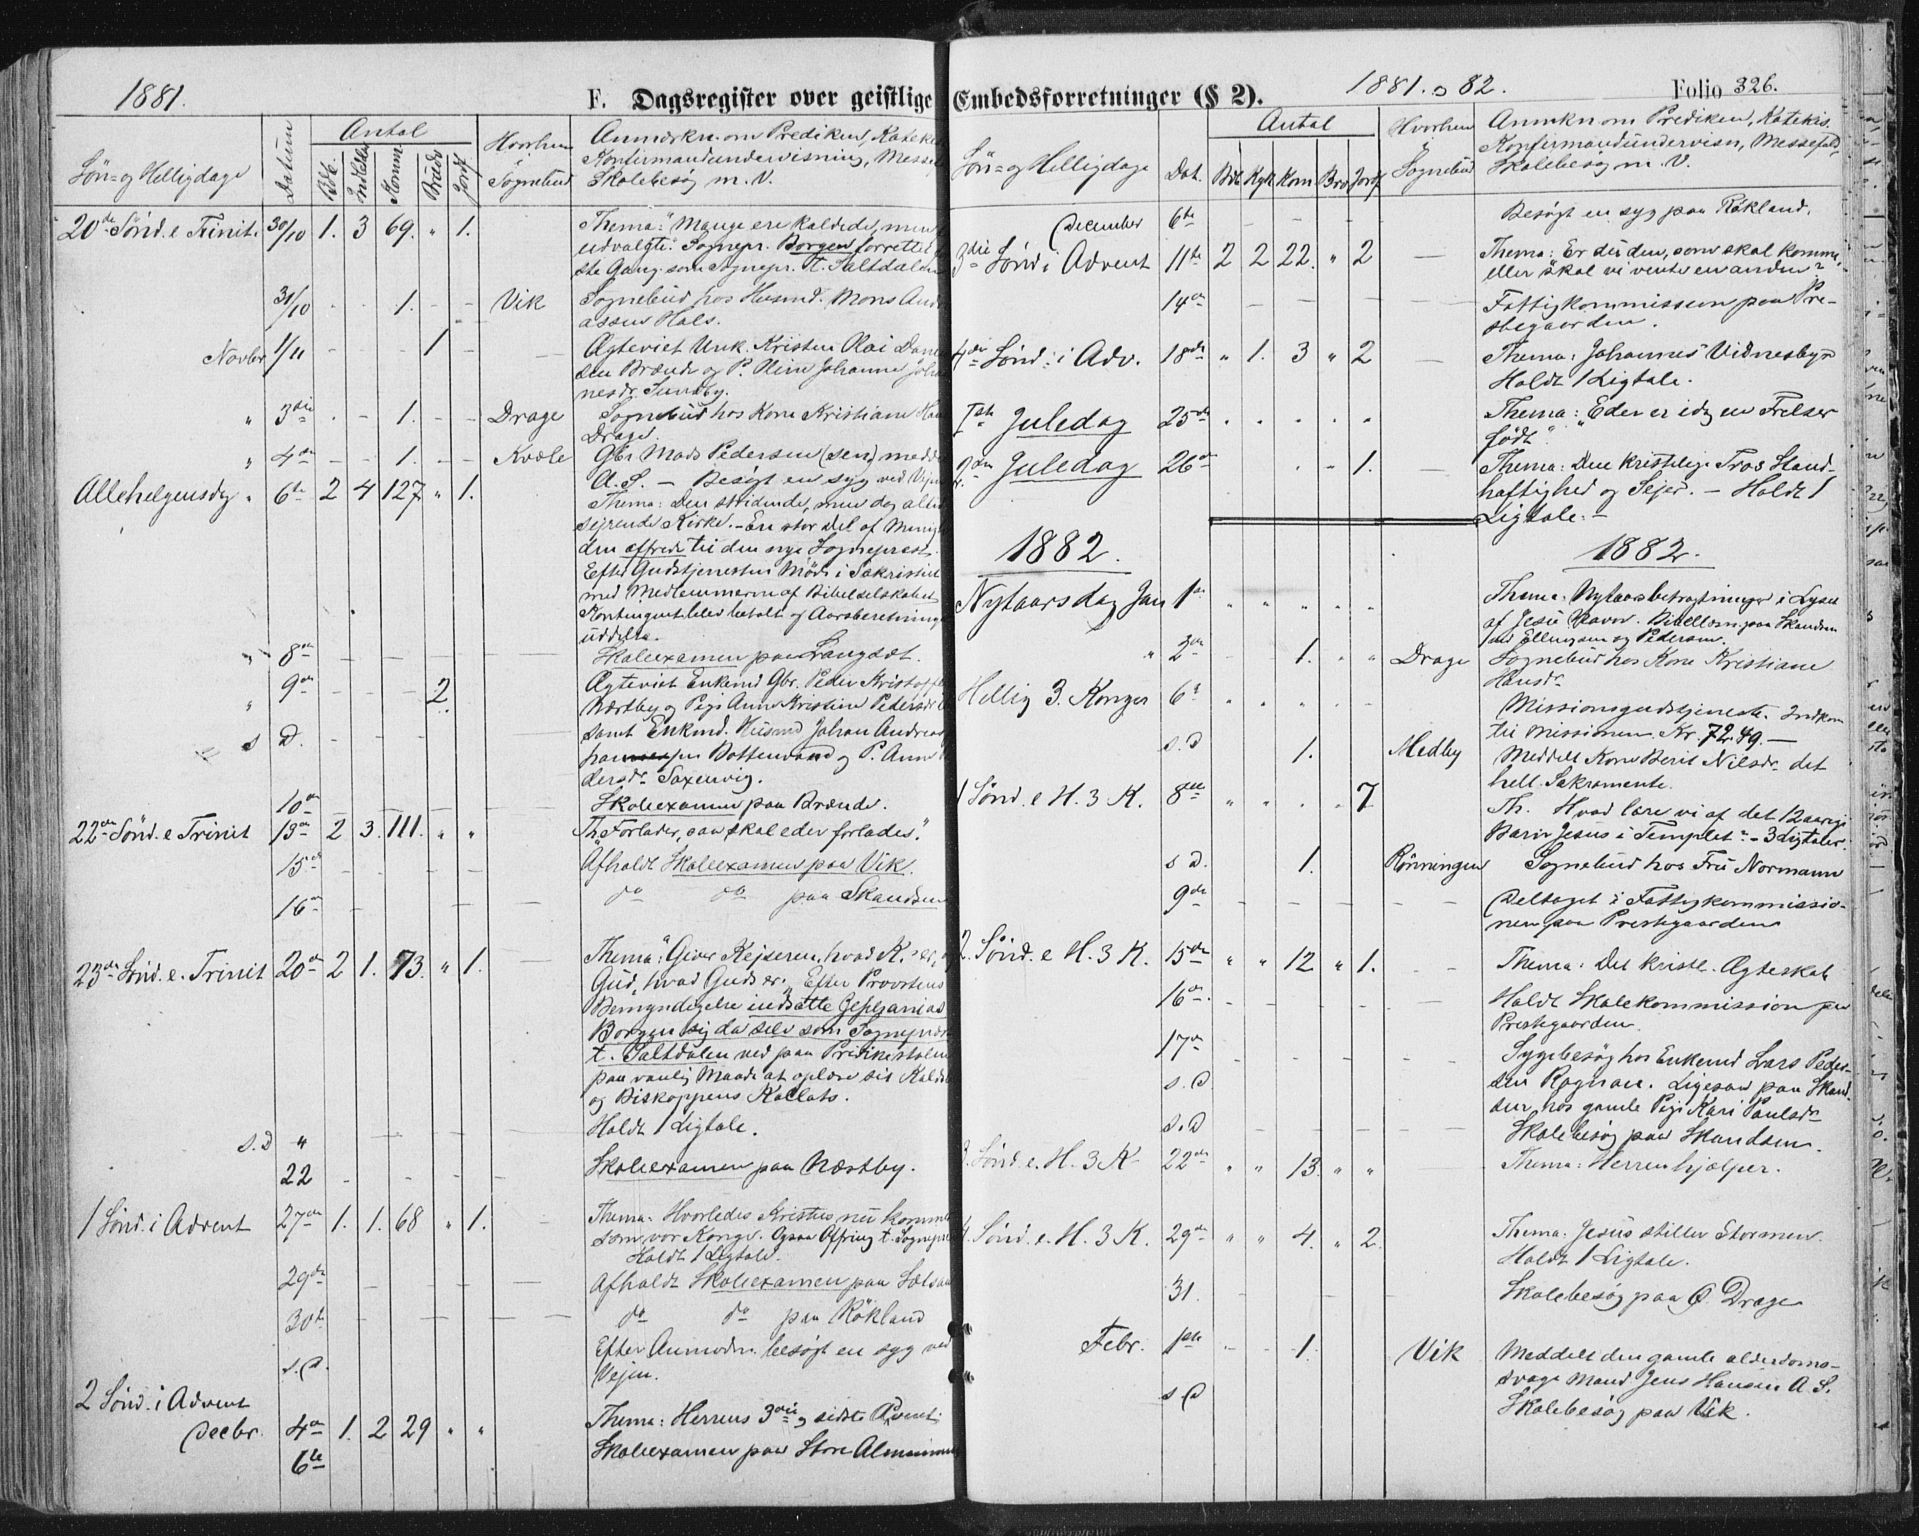 1881.
F. Dagsregister over geistlige
Søn- og Helligdage
Datum
Antal
Komm
Hvorhen
Sognebud
Anmærkn. om Prediken, Katekes
Konfermandundervisning, Messef
Skolebesøg m. V.
20de Sønd. e. Trinit. 30/10 1. 3 69. " 1. Thema: "Mange ere kaldede, men
udvalgte. Sognepr. Borgen forrettet
ste Gang som Sognepr. t. Saltdalen
31/10 - - 1. - - Vik Sognebud hos Husmd. Mons Andr
assen Hals.
Novbr. 1/11 - - - 1 Ægteviet Unk. Kristen Olai
sen Brænde og P. Oline Johanna Joha
nesdr. Sundby.
" 3die - - 1. - - Drage Sognebud hos Kone Kristiane
Drage.
" 4de - - 1. - - Kvæle Gbr. Mads Pedersen (sen) medd
A. S. - Besøgt en syg ved Vejen
Allehelgensdg " 6te 2 4 127 " 1. Thema: Den stridende, men dog altid
sejrende Kirke. - En stor Del af Menig
den offrede til den nye Sogneprest.
Efter Gudstjenesten Møde i Sakristiet
med Medlemmerne af Bibelselskabet
Kontingent blev betalt og Aarsberetninger
uddelte.
" 8de Skoleexamen paa Langset.
" 9de - - - 2. Ægteviet Enkemd. Gbr. Peder Kristoffe
Næstby og Pige Anne Kristine Pedersdr
s D. samt Enkmd. Husmd Johan Andreas
Bottenvand og P. Anne
dersdr. Saxenvig.
10de Skoleexamen paa Brænde.
22de Sønd. e Trinit 13de 2 3. 111. " " Th. "Forlader, saa skal eder forlades."
15de Afholdt Skoleexamen paa Vik.
16de do do paa Skandsen
23de Sønd. e. Trinit 20de 2 1. 73. " 1. Thema: "Giver Kejseren, hvad K. er, og
Gud, hvad Guds er. Efter Provstens
Bemyndigelse indsatte Zephanias
Borgen sig da selv som Sogneprest
t. Saltdalen ved paa Prædikestolen
paa vanlig Maade at oplæse sit Kalds
og Biskoppens Kollats.
s. D " Holdt 1 Ligtale.
22 Skoleexamen paa Næstby.
1 Sønd. i Advent 27de 1. 1. 68 " 1. Thema: Hvorledes Kristus nu kommer
som vor Konge. Ogsaa Offring t. Sognepr
Holdt 1 Ligtale.
29de Afholdt Skoleexamen paa
30te do do paa Røkland
s. D. Efter Anmodn. besøgt en syg ved
Vejen.
2 Sønd. i Advent
Decbr. 4de 1. 2 29 " " Thema: Herrens 3die og sidste Advent.
6te Skoleexamen paa Store
Embedsforretninger (§ 2).
1881 o 82.
Folio 326.
Søn- og Helligdage
Dat.
Antal
Kom
Hvorhen
Sognebud
Anmkn om Prediken, Katekis.
Konfermandundervisn, Messefald,
Skolebesøg m. V.
December 6te Besøgt en syg paa Røkland.
3die Sønd i Advent 11te 2 2 22. " 2 Thema: Er du den, som skal komme,
eller skal vi vente en anden?
14de Fattigkommission paa Pre-
stegaarden.
4de Sønd. i Adv. 18de " 1. 3 " 2 Thema: Johannes' Vidnesbyrd
Holdt 1 Ligtale.
1ste Juledag 25de Thema: "Eder er idag en Frelser
født".
2den Juledag 26de 1. Thema: Den kristelige Tros Stand-
haftighed og Sejer. - Holdt 1
Ligtale. -
1882.
1882.
Nytaarsdag Jan 1ste Thema: Nytaarsbetragtninger i Lyset
af Jesu Navn. paa Skandsen
Ellingsen og Pedersen.
" 2de 1. Drage Sognebud hos Kone Kristiane
Hansdr.
Hellig 3. Konger 6te Missionsgudstjeneste. Indkom
til Missionen Kr. 72.49. -
s. D 1. Medby Meddelt Kone Berit Nilsdr. det
hell. Sakramente.
1 Sønd. e H. 3 K. 8de " 7 Th. Hvad lære vi af det 12 aarige
Barn Jesus i Templet? - 3 Ligtaler.
s D. 1. Rønningen Sognebud hos Fru Normann
9de Deltaget i Fattigkommissio-
nen paa Prestegaarden
2. Sønd. e H. 3 K. 15de " " 12 " 1. Thema: Det kristl. Ægteskab
16de Holdt Skolekommission paa
Prestegaarden.
17de Sygebesøg hos Enkemd Lars Peder-
sen Rognan. Ligesaa paa Skand-
s. D sen hos gamle Pige Kari Paulsdr
s. D Skolebesøg paa Skandsen.
3. Sønd. e. H. 3 K 22de " " 13. " " Thema: Herren hjælper.
4. Sønd. e. H. 3 K. 29de " " 4. " 2. Thema: Jesus stiller Stormen.
Holdt 1 Ligtale.
31. Skolebesøg paa Ø. Drage
Febr. 1ste 1. Vik Meddelt den gamle alderdoms-
svage Mand Jens Hansen A. S.
s. D Skolebesøg paa Vik.